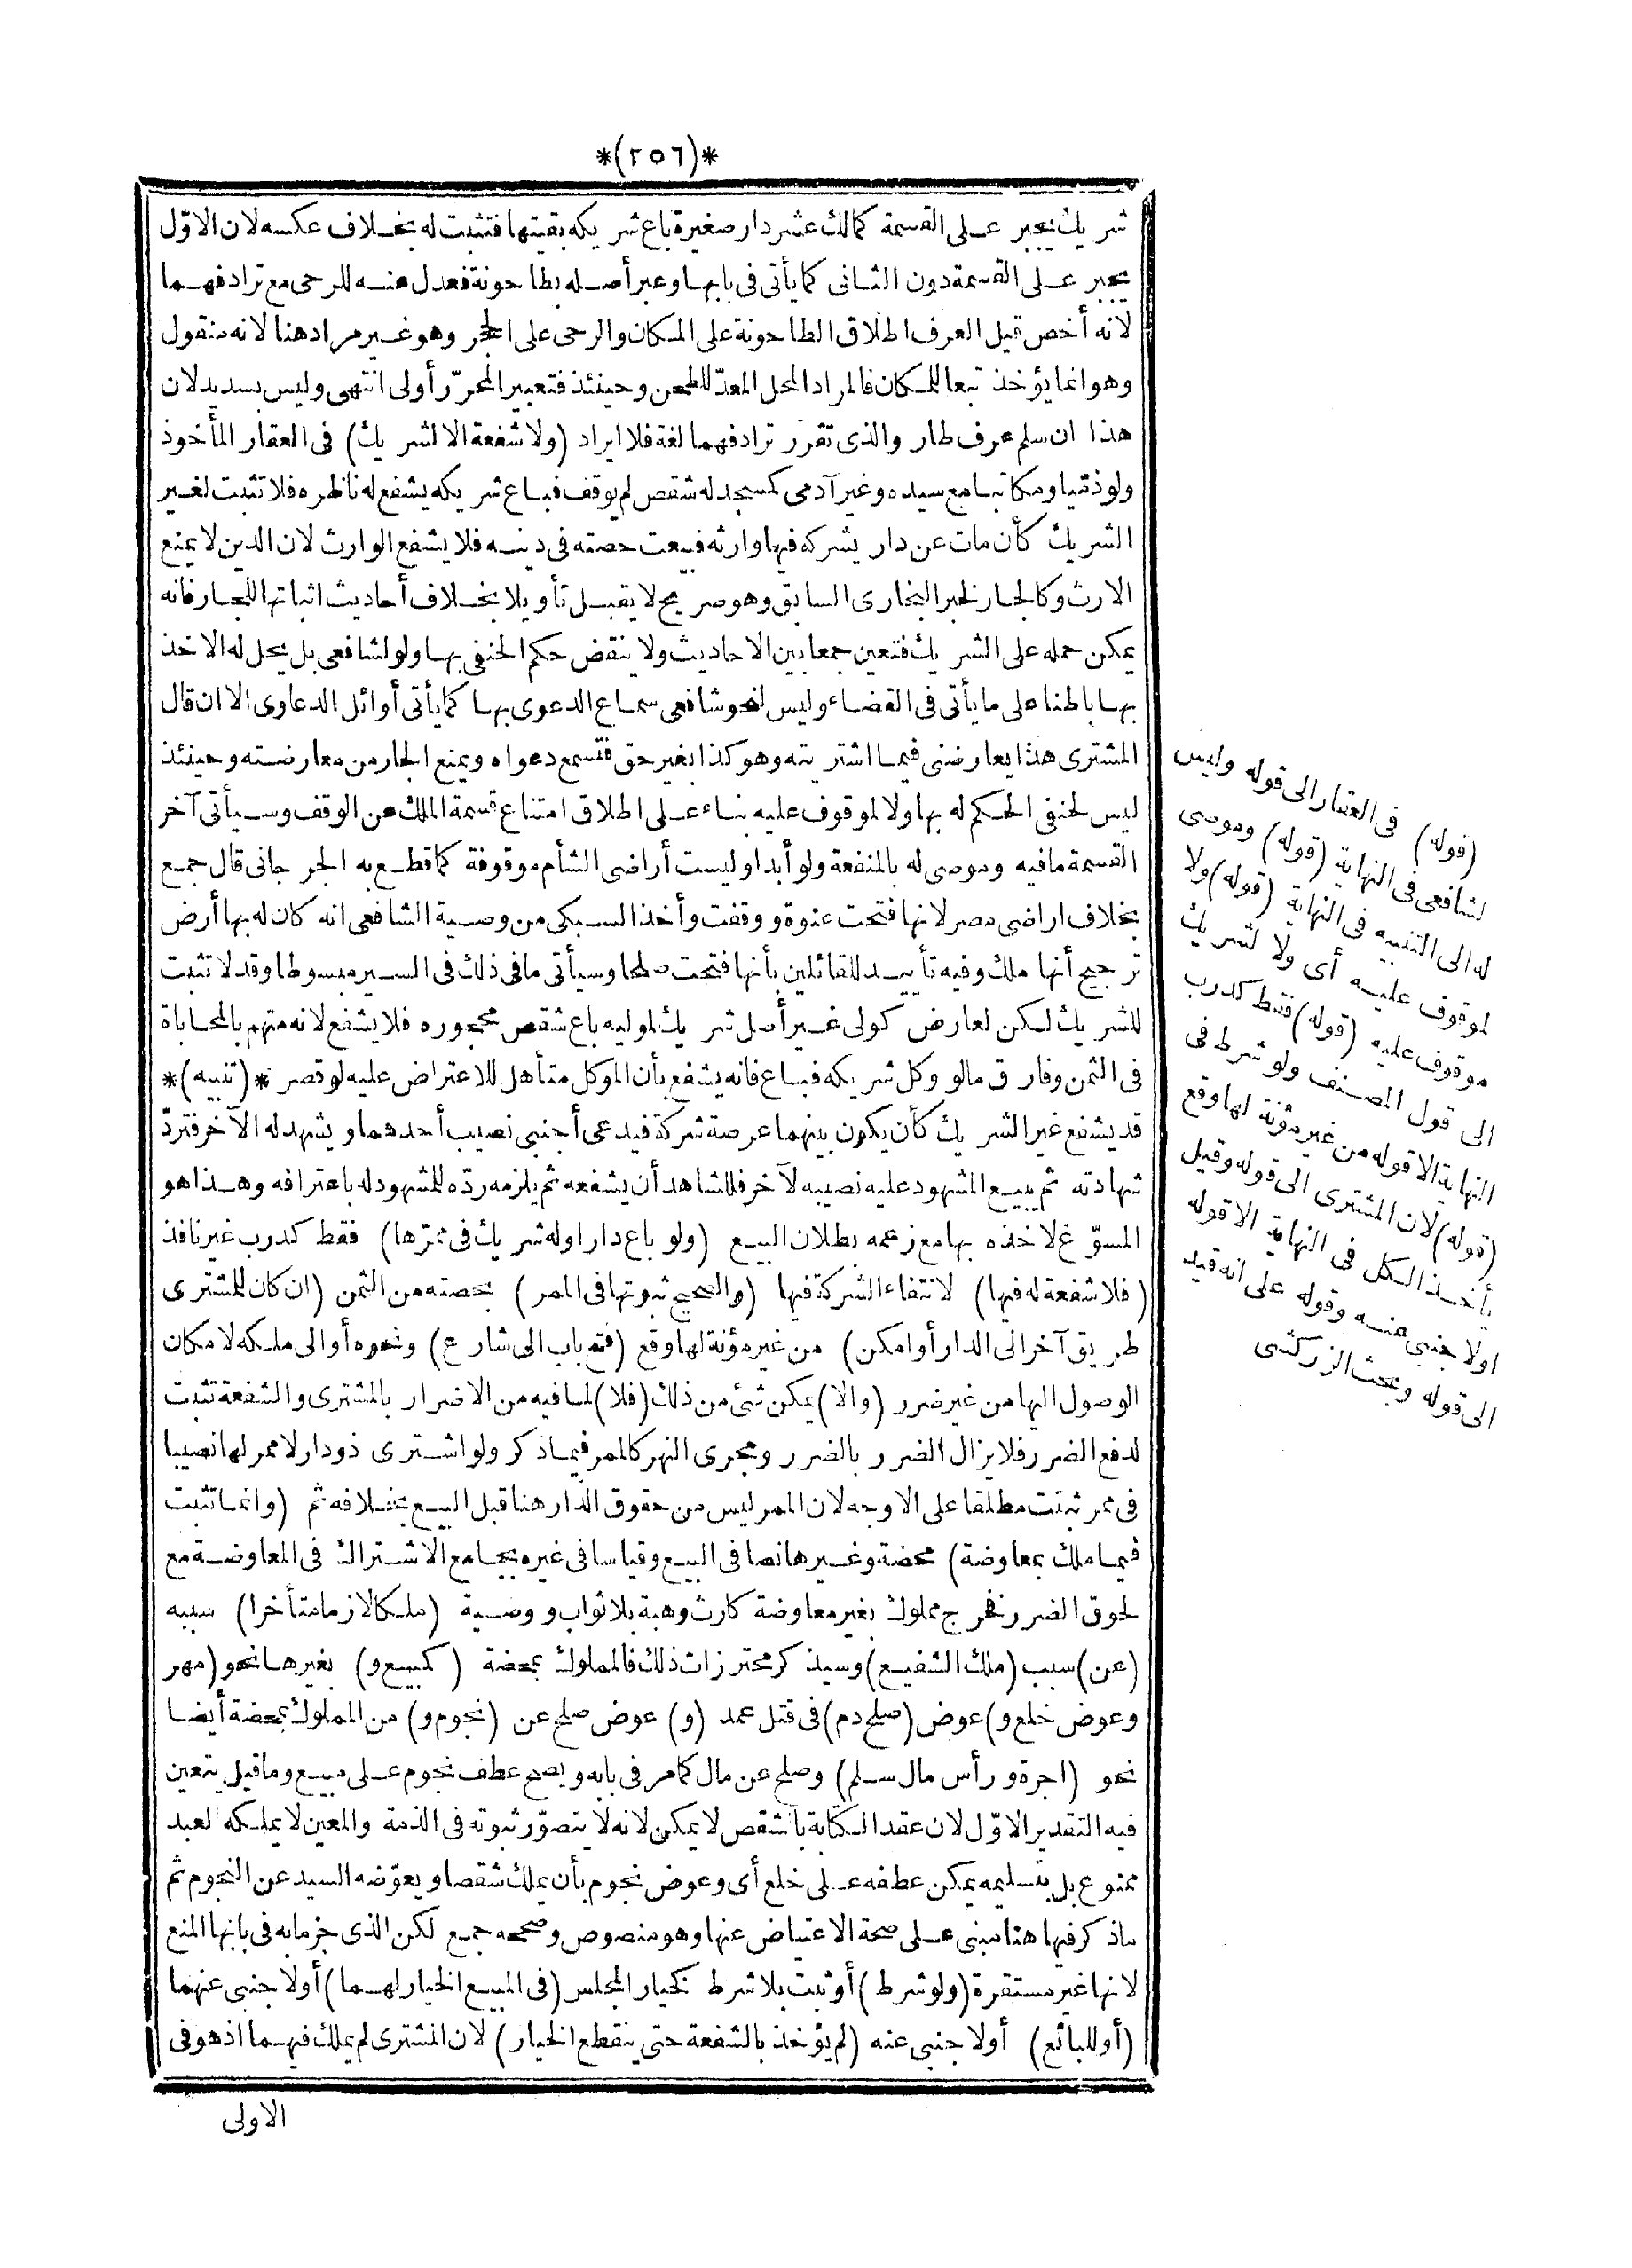 *(٢٥٦)*
شريك يجبر على القسمة كمالك عشر دار صغيرة باع شريكه بقيتها فتثبت له بخلاف عكسه لان الاوّل
يجبر على القسمة دون الثانى كما يأتى فى بابها وعبر أصله بطاحونة فعدل عنه للرحى مع ترادفهما
لانه أخص قيل العرف اطلاق الطاحونة على المكان والرحى على الحجر وهو غير مراد هنا لانه منقول
وهو انما يؤخذ تبعا للمكان فالمراد المحل المعدّ للطحن وحينئذ فتعبير المحرّر أولى انتهى وليس بسديد لان
هذا ان سلم عرف طار والذى تقرر ترادفهما لغة فلا ايراد (ولا شفعة الا لشريك) فى العقار المأخوذ
ولو ذميا ومكاتبا مع سيده وغير آدمى كمسجد له شقص لم يوقف فباع شريكه يشفع له ناظره فلا تثبت لغير
الشريك كأن مات عن دار يشركه فيها وارثه فبيعت حصته فى دينه فلا يشفع الوارث لان الدين لا يمنع
الارث وكالجار لخبر البخارى السابق وهو صريح لا يقبل تأويلا بخلاف أحاديث اثباتها للجار فانه
يمكن حمله على الشريك فتعين جمعا بين الاحاديث ولا ينقض حكم الحنفى بها ولو لشافعى بل يحل له الاخذ
بها باطنا على ما يأتى فى القضاء وليس لنحو شافعى سماع الدعوى بها كما يأتى أوائل الدعاوى الا ان قال
المشترى هذا يعارضنى فيما اشتريته وهو كذا بغير حق فتسمع دعواه ويمنع الجار من معارضته وحينئذ
ليس لحنفى الحكم له بها ولا لموقوف عليه بناء على اطلاق امتناع قسمة الملك عن الوقف وسيأتى آخر
القسمة ما فيه وموصى له بالمنفعة ولو أبدا وليست أراضى الشأم موقوفة كما قطع به الجرجانى قال جمع
بخلاف اراضى مصر لانها فتحت عنوة ووقفت وأخذ السبكى من وصية الشافعى انه كان له بها أرض
ترجيح أنها ملك وفيه تأييد للقائلين بأنها فتحت صلحا وسيأتى ما فى ذلك فى السير مبسوطا وقد لا تثبت
للشريك لكن لعارض كولى غير أصل شريك لموليه باع شقص محجوره فلا يشفع لانه متهم بالمحاباة
فى الثمن وفارق ما لو وكل شريكه فباع فانه يشفع بأن الموكل متأهل للاعتراض عليه لو قصر *(تنبيه)*
قد يشفع غير الشريك كأن يكون بينهما عرصة شركة فيدعى أجنبى نصيب أحدهما ويشهد له الآخر فتردّ
شهادته ثم يبيع المشهود عليه نصيبه لآخر فللشاهد أن يشفعه ثم يلزمه ردّه للمشهود له باعترافه وهذا هو
المسوّغ لاخذه بها مع زعمه بطلان البيع (ولو باع دارا وله شريك فى ممرّها) فقط كدرب غير نافذ
(فلا شفعة له فيها) لانتفاء الشركة فيها (والصحيح ثبوتها فى الممر) بحصته من الثمن (ان كان للمشترى
طريق آخر الى الدار أو امكن) من غير مؤنة لها وقع (فتح باب الى شارع) ونحوه أو الى ملكه لامكان
الوصول اليها من غير ضرر (والا) يمكن شئ من ذلك (فلا) لما فيه من الاضرار بالمشترى والشفعة تثبت
لدفع الضرر فلا يزال الضرر بالضرر ومجرى النهر كالممر فيما ذكر ولو اشترى ذو دار لا ممر لها نصيبا
فى ممر ثبتت مطلقا على الاوجه لان الممر ليس من حقوق الدار هنا قبل البيع بخلافه ثم (وانما تثبت
فيما ملك بمعاوضة) محضة وغيرها نصا فى البيع وقياسا فى غيره بجامع الاشتراك فى المعاوضة مع
لحوق الضرر فخرج مملوك بغير معاوضة كارث وهبة بلا ثواب ووصية (ملكا لازما متأخرا) سببه
(عن) سبب (ملك الشفيع) وسيذكر محترزات ذلك فالمملوك بمحضة (كمبيع و) بغيرها نحو (مهر
وعوض خلع و) عوض (صلح دم) فى قتل عمد (و) عوض صلح عن (نجوم و) من المملوك بمحضة أيضا
نحو (اجرة ورأس مال سلم) وصلح عن مال كما مر فى بابه ويصح عطف نجوم على مبيع وما قيل يتعين
فيه التقدير الاوّل لان عقد الكتابة بالشقص لا يمكن لانه لا يتصوّر ثبوته فى الذمة والمعين لا يملكه العبد
ممنوع بل بتسليمه يمكن عطفه على خلع أى وعوض نجوم بأن يملك شقصا ويعوّضه السيد عن النجوم ثم
ما ذكر فيها هنا مبنى على صحة الاعتياض عنها وهو منصوص وصححه جمع لكن الذى جزما به فى بابها المنع
لانها غير مستقرة (ولو شرط) أو ثبت بلا شرط كخيار المجلس (فى البيع الخيار لهما) أو لاجنبى عنهما
(أو للبائع) أو لاجنبى عنه (لم يؤخذ بالشفعة حتى ينقطع الخيار) لان المشترى لم يملك فيهما اذ هو فى
الاولى
(قوله) فى العقار الى قوله وليس
لشافعى فى النهاية (قوله) وموصى
له الى التنبيه فى النهاية (قوله) ولا
لموقوف عليه أى ولا لشريك
موقوف عليه (قوله) فقط كدرب
الى قول المصنف ولو شرط فى
النهاية الا قوله من غير مؤنة لها وقع
(قوله) لان المشترى الى قوله وقيل
يأخذ الكل فى النهاية الا قوله
او لاجنبى عنه وقوله على انه قيد
الى قوله وبحث الزركشى